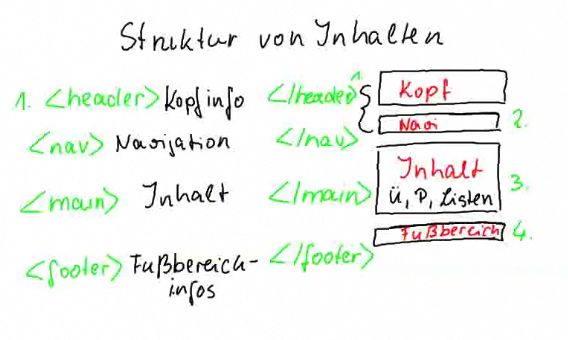 Struktur von Inhalten
1. <header> Kopfinfo </header>
<nav> Navigation </nav>
<main> Inhalt </main>
<footer> Fußbereich-
infos </footer>
1.
Kopf
Navi 2.
Inhalt 3.
Ü, P, Listen
Fußbereich 4.